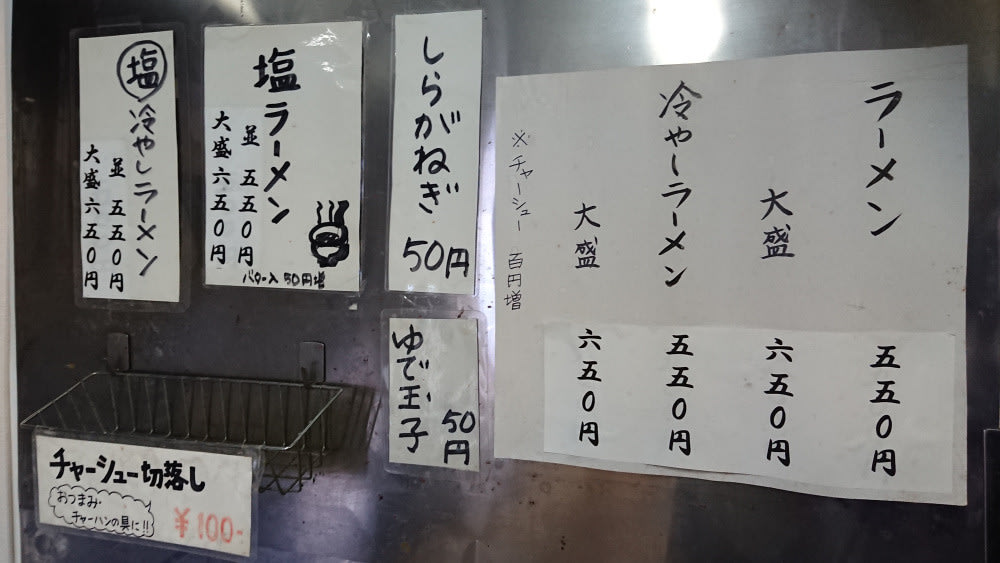 ラーメン 五五〇円
大盛 六五〇円
冷やしラーメン 五五〇円
大盛 六五〇円
※チャーシュー 百円増
しらがねぎ 50円
ゆで玉子 50円
塩ラーメン
並 五五〇円
大盛 六五〇円
バター入 50円増
塩冷やしラーメン
並 五五〇円
大盛 六五〇円
チャーシュー切落し
おつまみ・
チャーハンの具に!!
¥100-